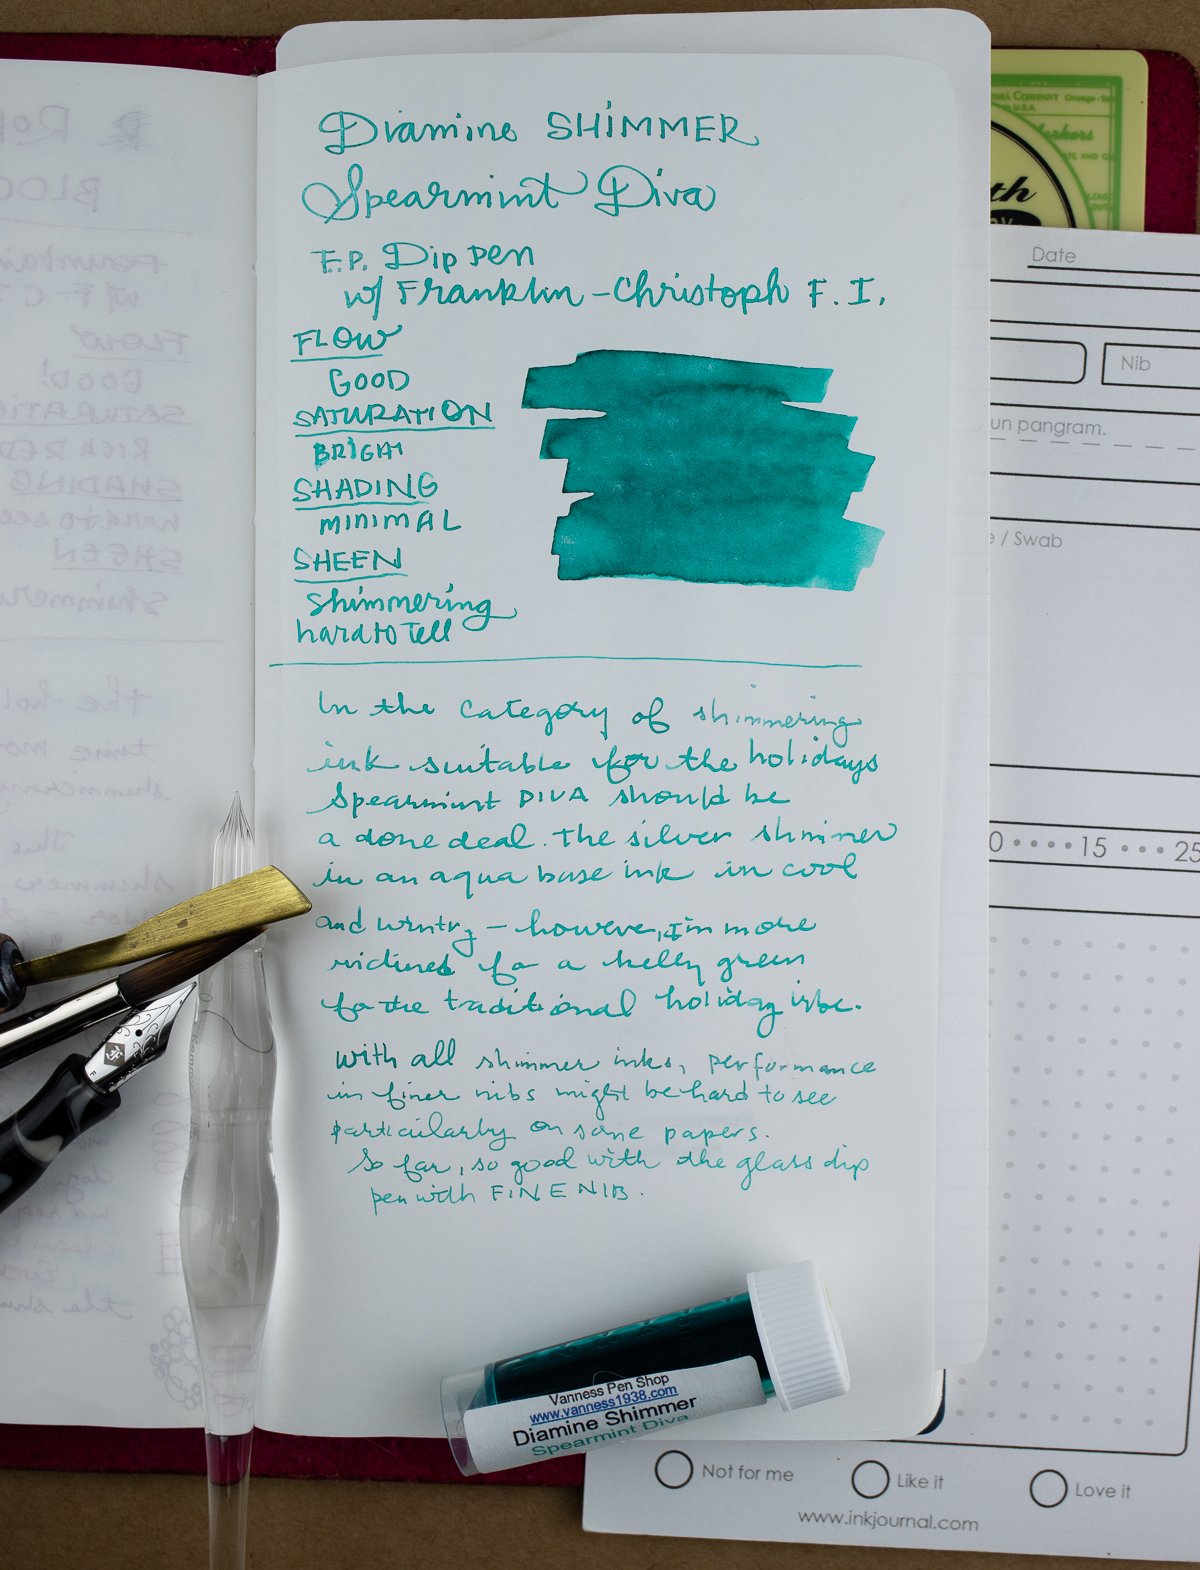 Diamine SHIMMER
Spearmint Diva
F.P. Dip pen
w/ Franklin-Christoph F. I.
FLOW
GOOD
SATURATION
BRIGHT
SHADING
MINIMAL
SHEEN
shimmering
hard to Tell
In the category of shimmering
ink suitable for the holidays
Spearmint DIVA should be
a done deal. The silver shimmer
in an aqua base ink in cool
and wintry - however, I'm more
inclined for a kelly green
for the traditional holiday
with all shimmer inks, performance
in finer nibs might be hard to see
particularly on some papers.
So far, so good with the glass dip
pen with FINE NIB.
Vanness Pen Shop
www.vanness1938.com
Diamine Shimmer
Spearmint Diva
Date
Nib
un pangram.
/ Swab
15
25
Not for me
Like it
Love it
www.inkjournal.com